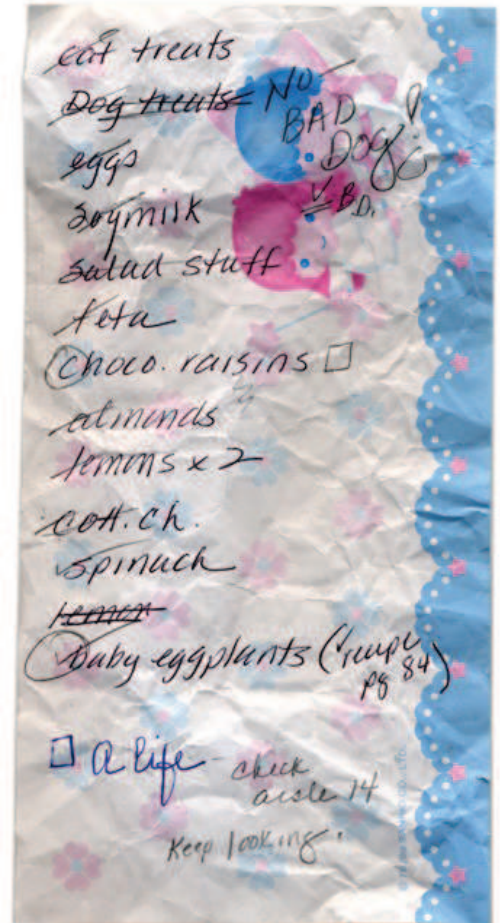 cat treats
Dog treats NO
BAD
DOG!
eggs
V.B.D.
soymilk
salad stuff
feta
choco. raisins
almonds
lemons x 2
cott. ch.
spinach
lemon
baby eggplants (recipe
pg 84)
a life - check
aisle 14
Keep looking.